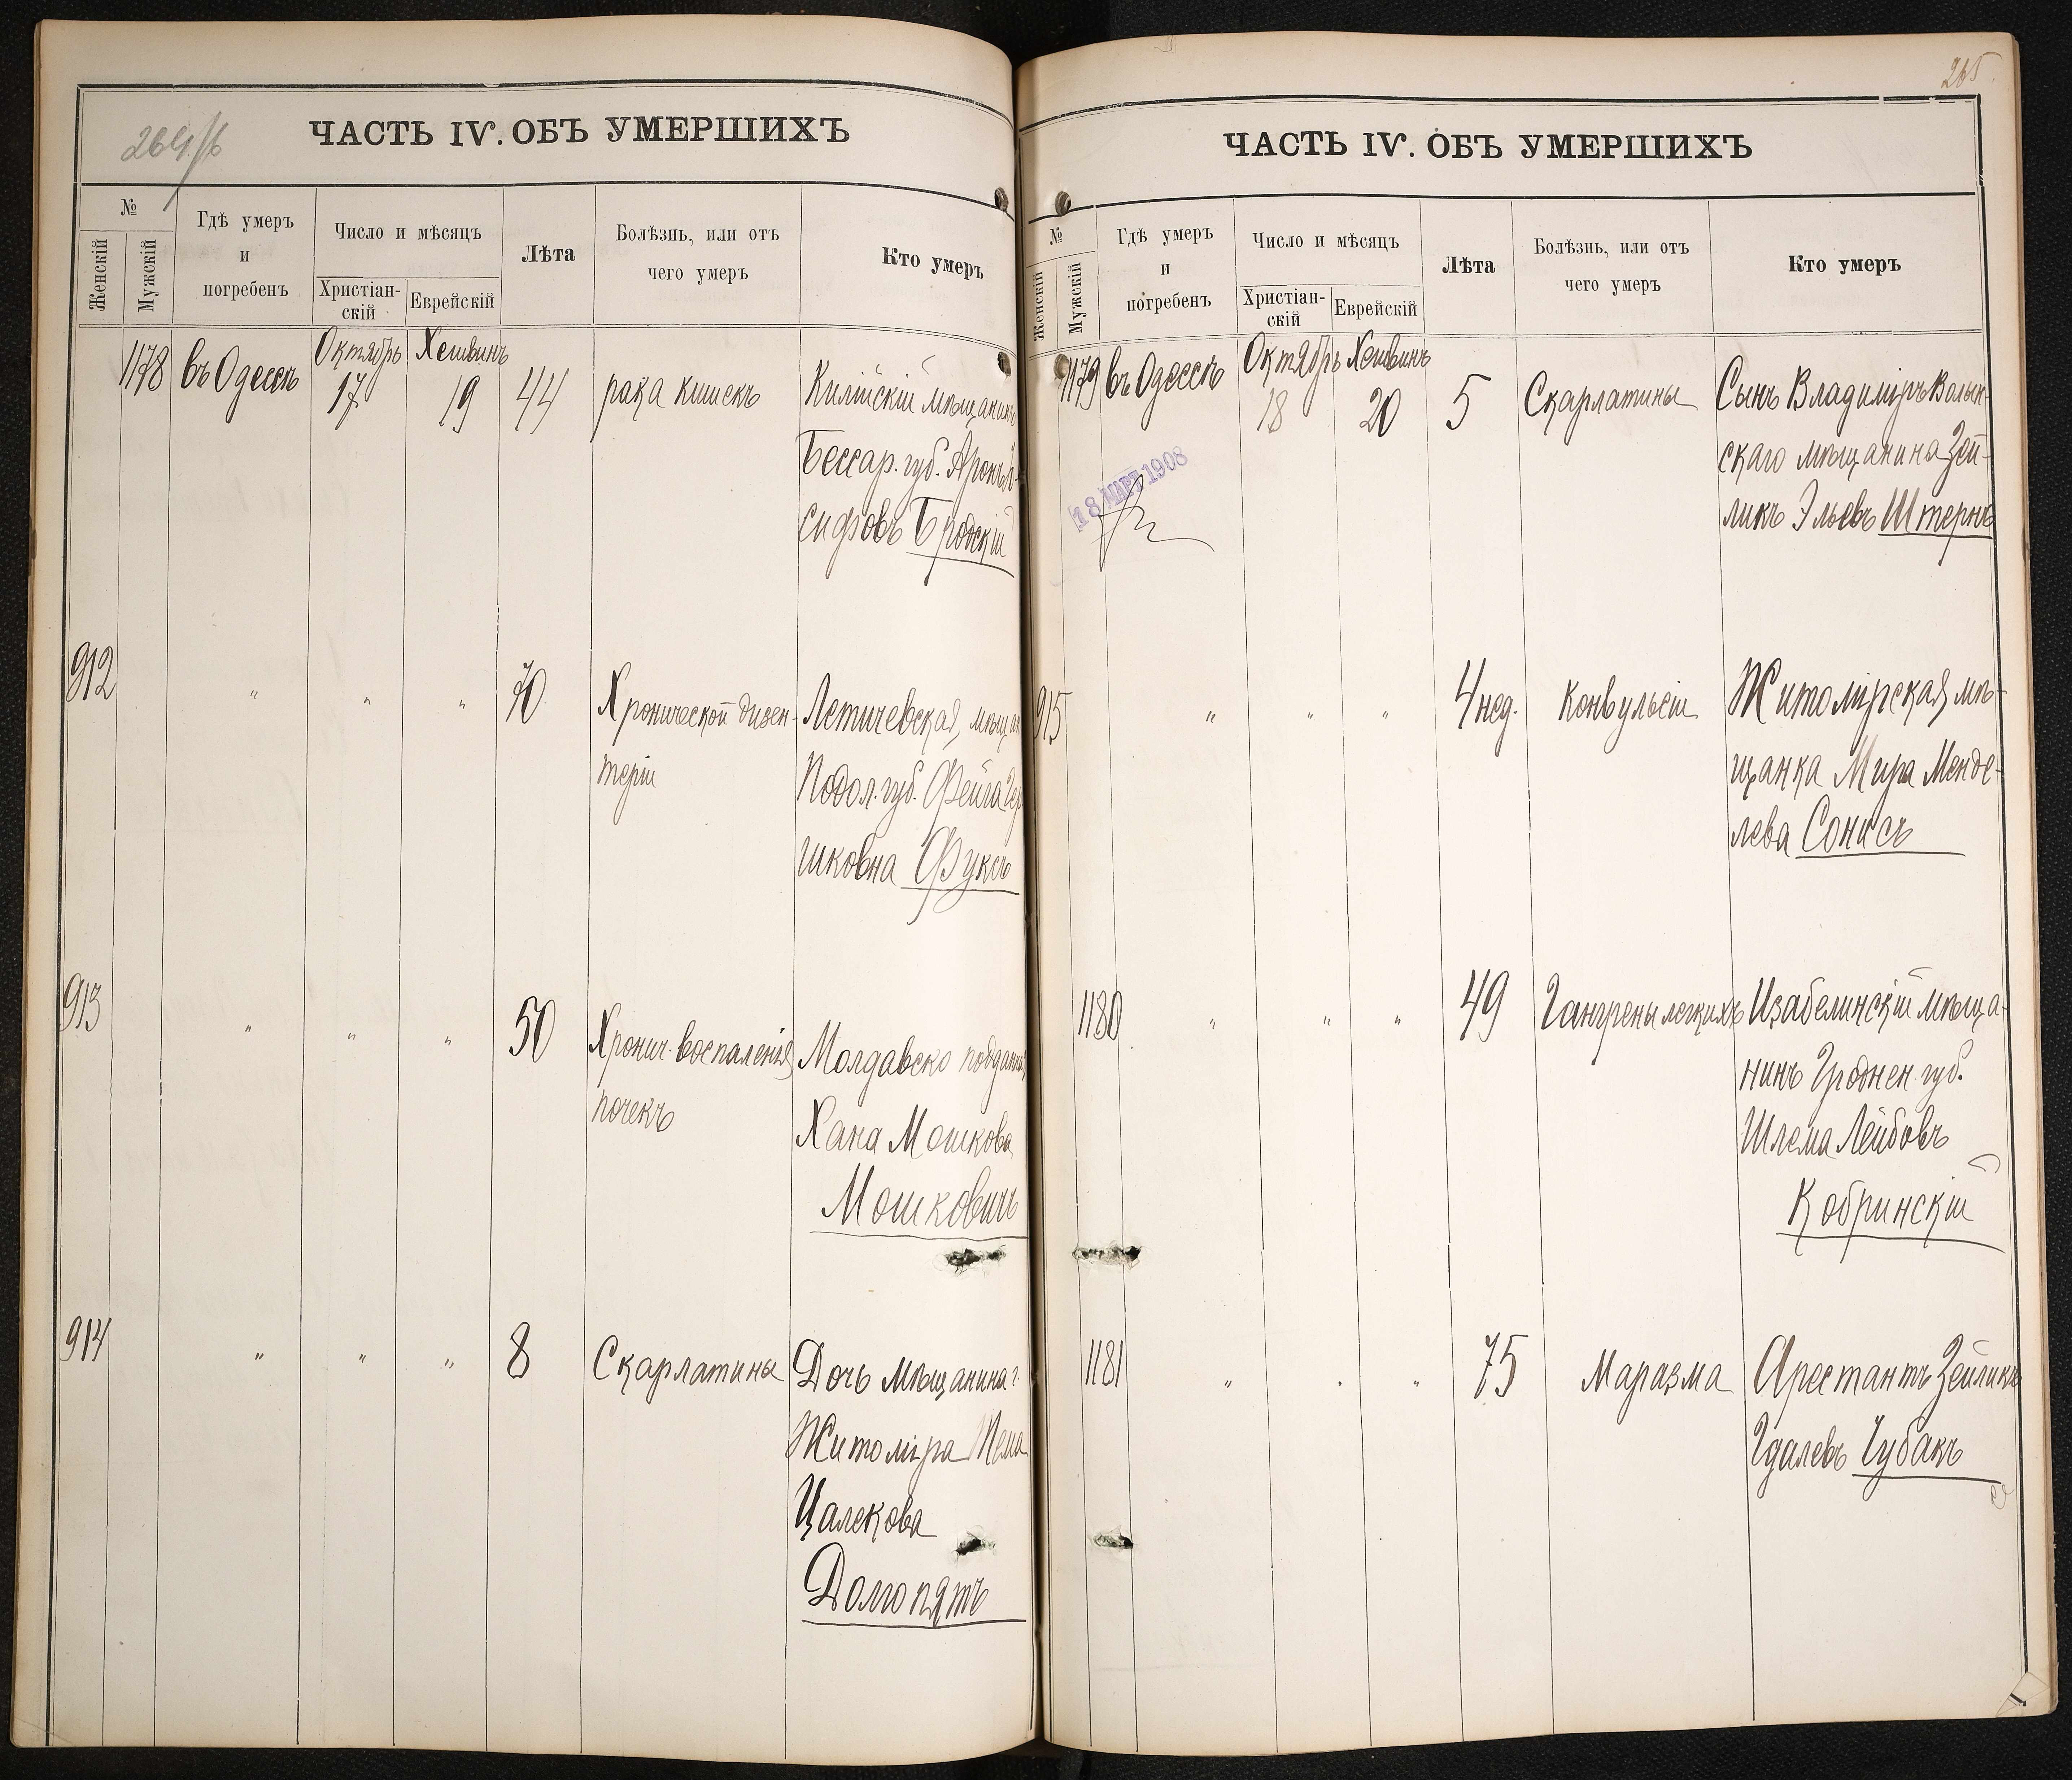 264/б
ЧАСТЬ IV. ОБЪ УМЕРШИХЪ
№
Женскій
Мужскій
Гдѣ умеръ
и
погребенъ
Число и мѣсяцъ
Христіан-
скій
Еврейскій
Лѣта
Болѣзнь, или отъ
чего умеръ
Кто умеръ
1178
въ Одессѣ
Октябрь
17
Хешвинъ
19
44
рака кишекъ
Килійскій мѣщанинъ
Бессар. губ. Аронъ Іо-
сифовъ Бродскій
912
"
"
"
70
Хронической дизен-
теріи
Летичевская мѣщан
Подол. губ. Фейга Гер
шковна Фуксъ
913
"
"
"
50
Хронич. воспаленія
почекъ
Молдавско поддан
Хана Мошкова
Мошковичъ
914
"
"
"
8
Скарлатины
Дочь мѣщанина г.
Житоміра
Цалекова
Долгопятъ
265
ЧАСТЬ IV. ОБЪ УМЕРШИХЪ
№
Женскій
Мужскій
Гдѣ умеръ
и
погребенъ
Число и мѣсяцъ
Христіан-
скій
Еврейскій
Лѣта
Болѣзнь, или отъ
чего умеръ
Кто умеръ
1179
въ Одессѣ
Октябрь
18
Хешвинъ
20
5
Скарлатины
Сынъ Владиміръ Волын-
скаго мѣщанина Зей-
ликъ Эльевъ Штернъ
18 МАРТ 1908
915
"
"
"
4 нед.
Конвульсіи
Житомірская мѣ-
щанка Мира Менде-
лева Сонисъ
1180
"
"
"
49
Гангрены легкихъ
Изабелинскій мѣща-
нинъ Гроднен. губ.
Шлема Лейбовъ
Кобринскій
1181
"
"
"
75
Маразма
Арестантъ Зейликъ
Гдалевъ Чубакъ